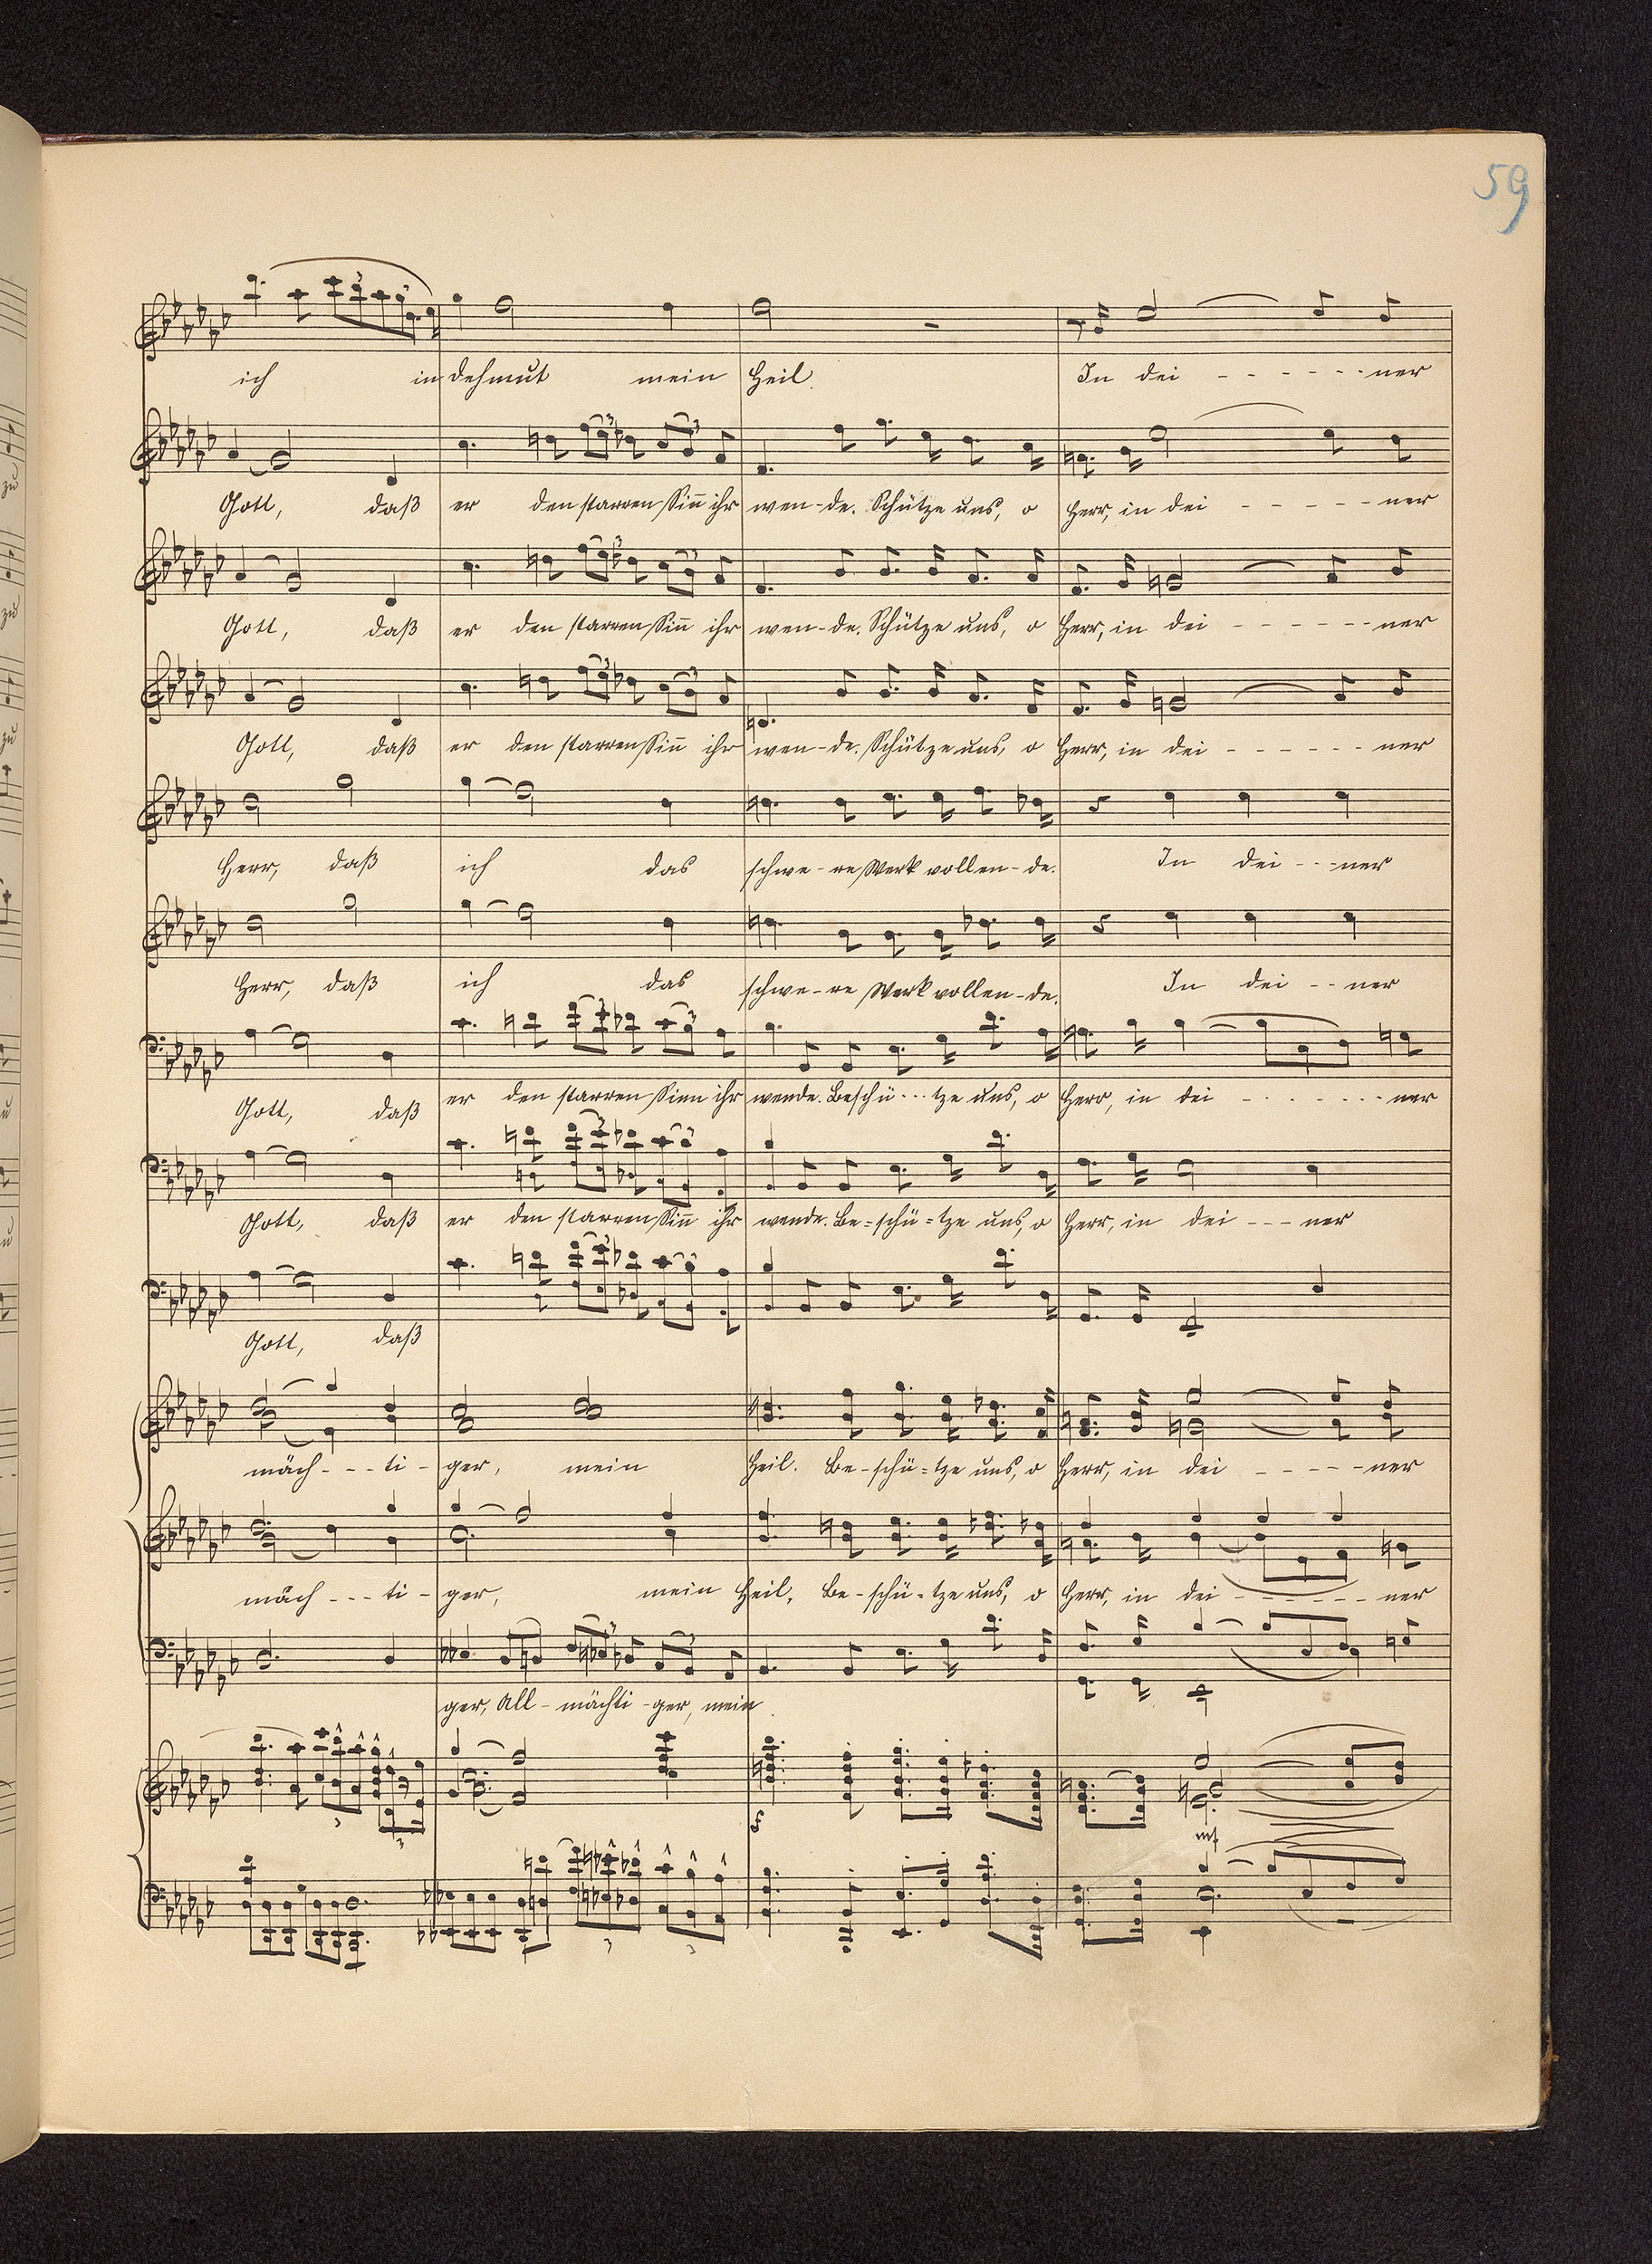 59
ich in dehmut mein Heil. In dei - - - - - - ner
Gott, daß er den starren Sin̄ ihr wen-de. Schütze uns, o Herr, in dei - - - - - ner
Gott, daß er den starren Sin̄ ihr wen-de. Schütze uns, o Herr, in dei - - - - - - ner
Gott, daß er den starren Sin̄ ihr wen-de. Schütze uns, o Herr, in dei - - - - - - ner
Herr, daß ich das schwe-re Werk vollen-de. In dei - - - ner
Herr, daß ich das schwe-re Werk vollen-de. In dei - - ner
Gott, daß er den starren Sinn ihr wende. Beschü...tze uns, o Herr, in dei - - - - - - - ner
Gott, daß er den starren Sin̄ ihr wende. Be=schü=tze uns, o Herr, in dei - - - ner
Gott, daß
mäch - - - ti - ger, mein Heil. Be-schü=tze uns, o Herr, in dei - - - - - ner
mäch - - - ti - ger, mein Heil, Be-schü=tze uns, o Herr, in dei - - - - - - ner
ger, All-mächti-ger, mein
f mf